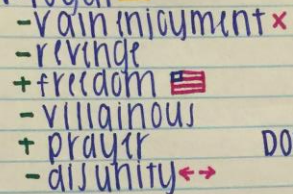 - vain enjoyment x
- revenge
+ freedom
- villainous
+ prayer DO
- disunity ↔